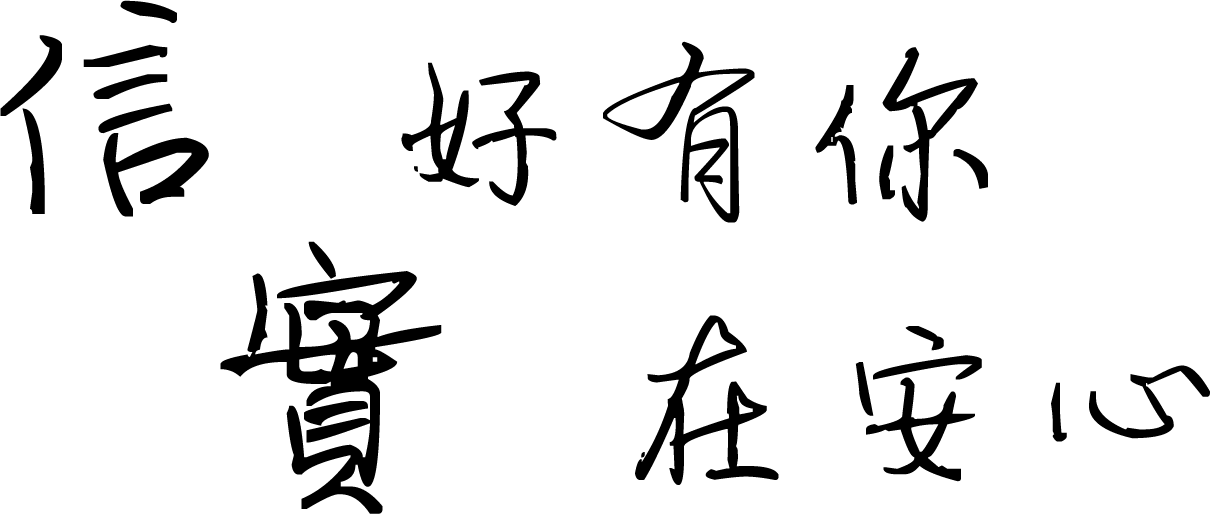 信 好有你
實 在安心